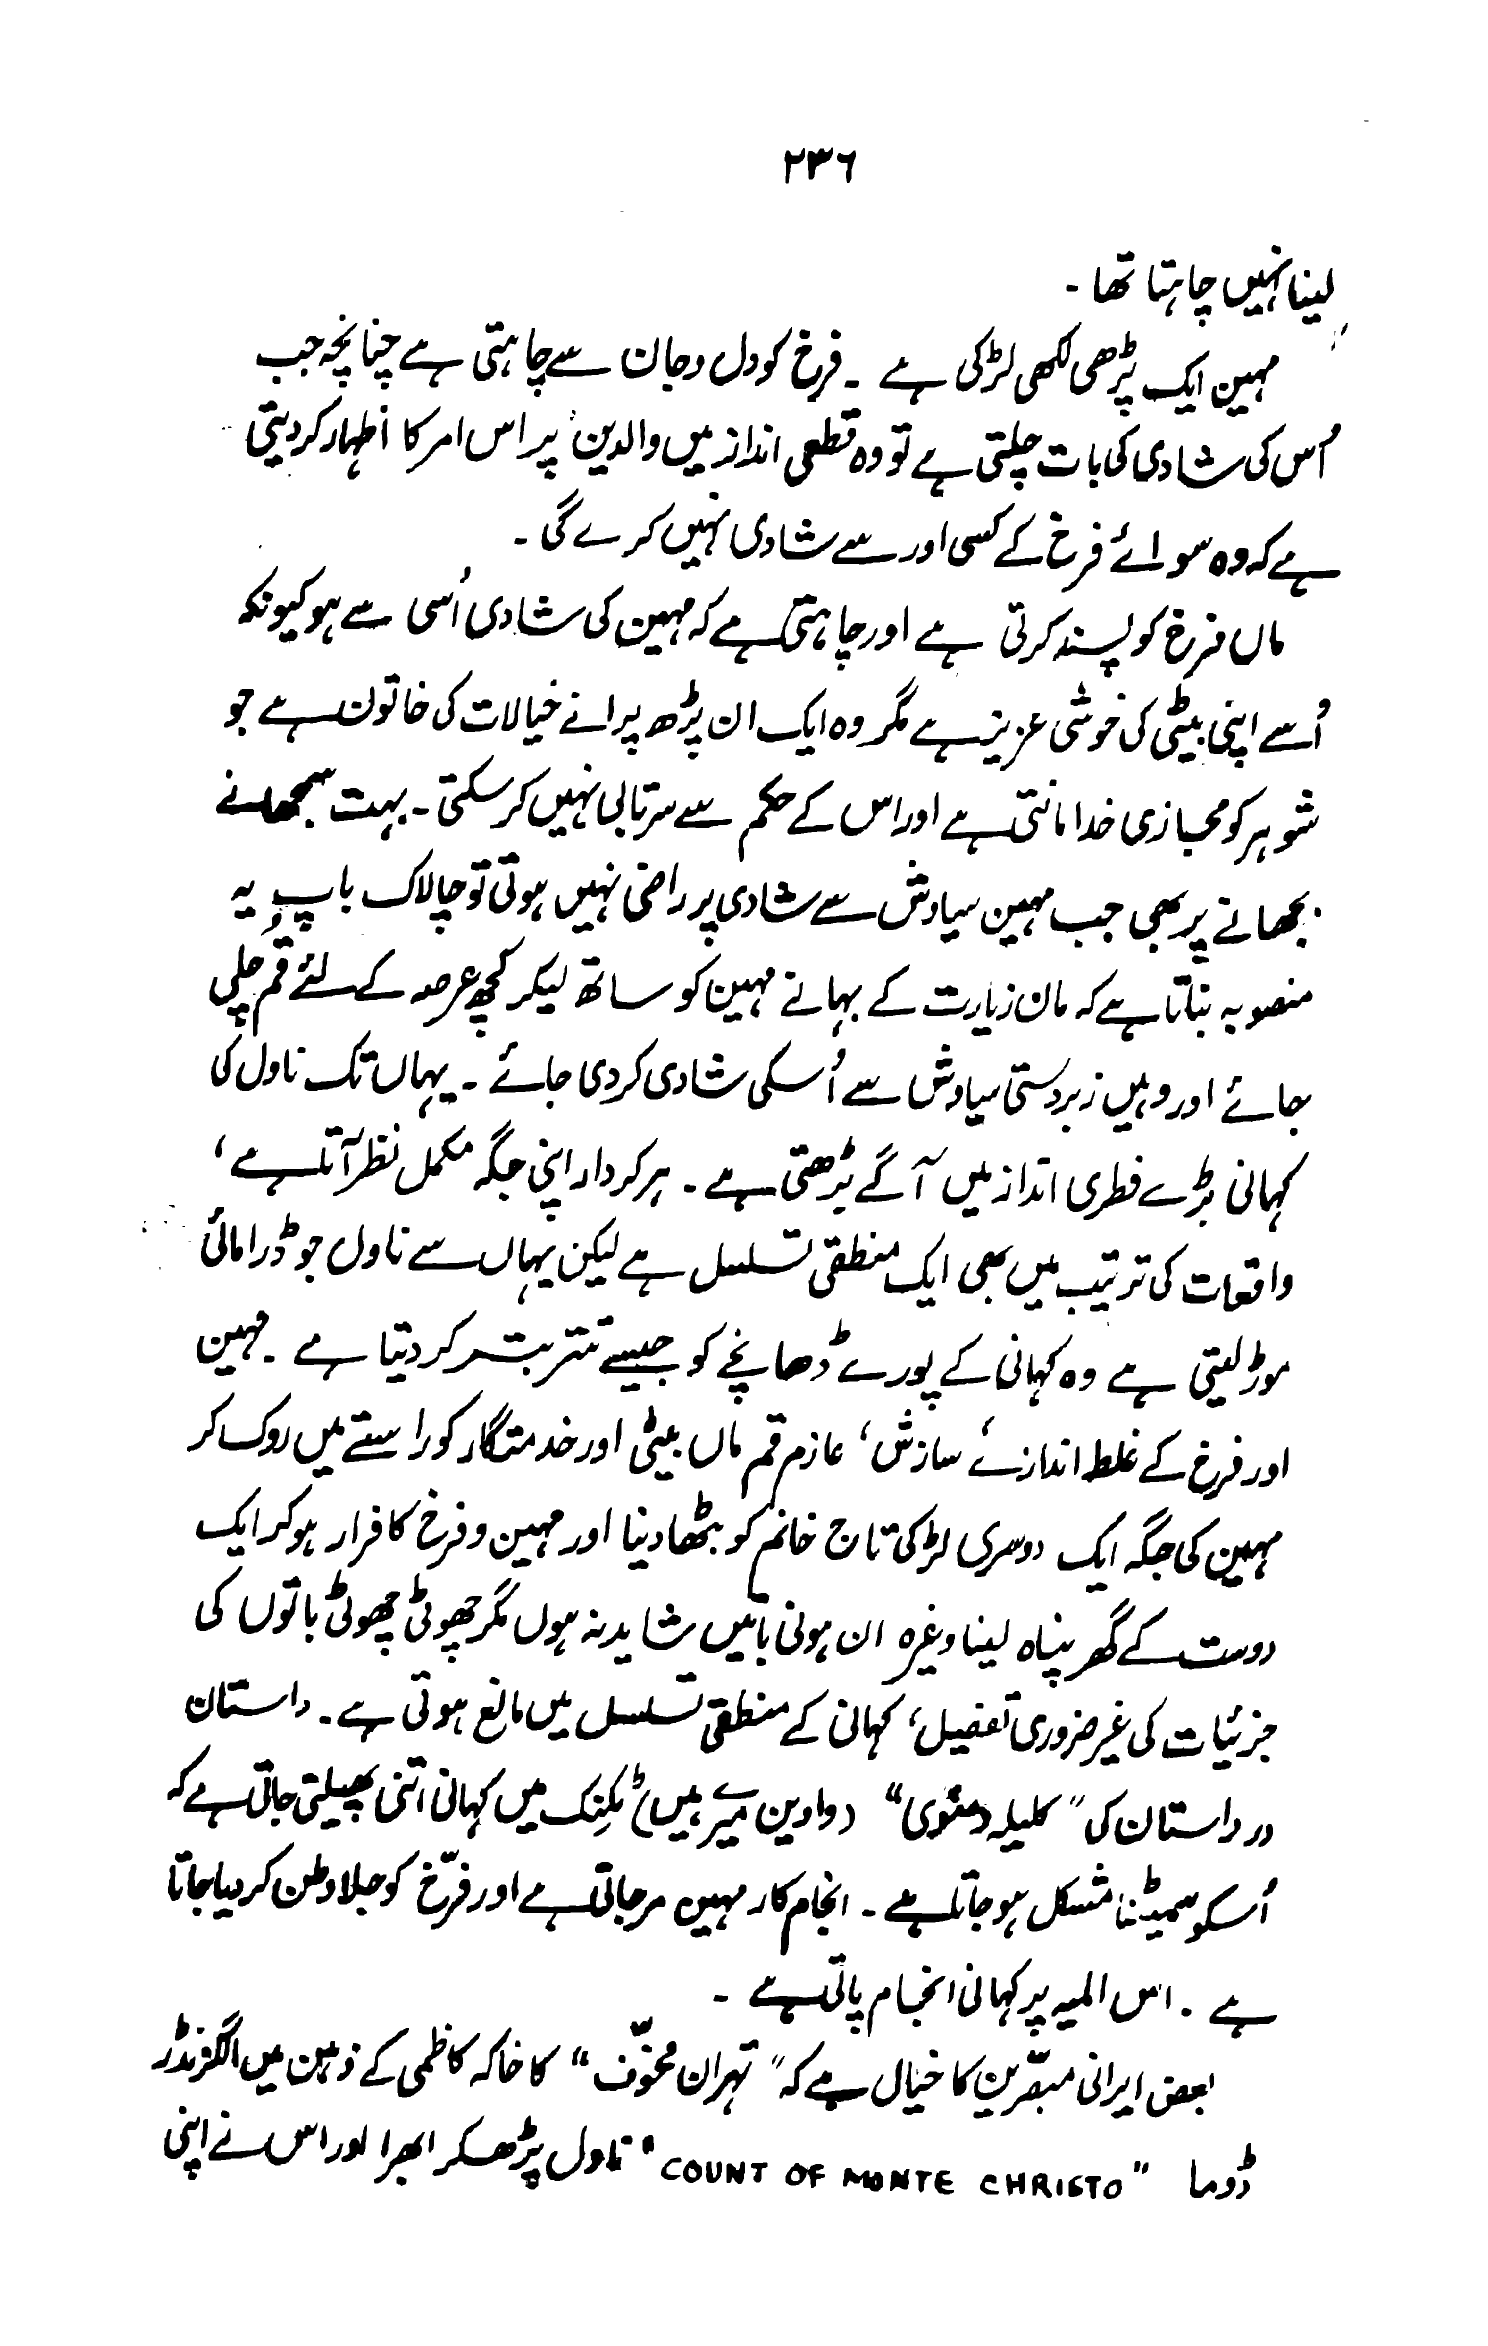 ۲۳۶
لینا نہیں چاہتا تھا ۔
مہین ایک پڑھی لکھی لڑکی ہے ۔ فرخ کو دل و جان سے چاہتی ہے چنانچہ جب
اُس کی شادی کی بات چلتی ہے تو وہ قطعی انداز میں والدین پر اس امر کا اظہار کر دیتی
ہے کہ وہ سوائے فرخ کے کسی اور سے شادی نہیں کرے گی ۔
ماں فرخ کو پسند کرتی ہے اور چاہتی ہے کہ مہین کی شادی اُسی سے ہو کیونکہ
اُسے اپنی بیٹی کی خوشی عزیز ہے مگر وہ ایک ان پڑھ پرانے خیالات کی خاتون ہے جو
شوہر کو مجازی خدا مانتی ہے اور اس کے حکم سے سرتابی نہیں کر سکتی ۔ بہت سمجھانے
بجھانے پر بھی جب مہین سیاوش سے شادی پر راضی نہیں ہوتی تو چالاک باپ یہ
منصوبہ بناتا ہے کہ مان زیارت کے بہانے مہین کو ساتھ لیکر کچھ عرصہ کے لئے قم چلی
جائے اور وہیں زبردستی سیاوش سے اُسکی شادی کر دی جائے ۔ یہاں تک ناول کی
کہانی بڑے فطری انداز میں آگے بڑھتی ہے ۔ ہر کردار اپنی جگہ مکمل نظر آتا ہے ،
واقعات کی ترتیب میں بھی ایک منطقی تسلسل ہے لیکن یہاں سے ناول جو ڈرامائی
موڑ لیتی ہے وہ کہانی کے پورے ڈھانچے کو جیسے تتر بتر کر دیتا ہے ۔ مہین
اور فرخ کے غلط اندازے ، سازش ، عازم قم ماں بیٹی اور خدمتگار کو راستے میں روک کر
مہین کی جگہ ایک دوسری لڑکی تاج خانم کو بٹھا دینا اور مہین و فرخ کا فرار ہو کر ایک
دوست کے گھر پناہ لینا وغیرہ ان ہونی باتیں شاید نہ ہوں مگر چھوٹی چھوٹی باتوں کی
جزئیات کی غیر ضروری تفصیل ، کہانی کے منطقی تسلسل میں مانع ہوتی ہے ۔ داستان
در داستان کی " کلیلہ دمنوی " میں کہانی اتنی پھیلتی جاتی ہے کہ
اُسکو سمیٹنا مشکل ہو جاتا ہے ۔ انجام کار مہین مر جاتی ہے اور فرّخ کو جلا وطن کر دیا جاتا
ہے ۔ اس المیہ پر کہانی انجام پاتی ہے ۔
بعض ایرانی مبصّرین کا خیال ہے کہ " تہران مخوّف " کا خاکہ کاظمی کے ذہن میں الگزنڈر
ڈوما " COUNT OF MONTE CHRISTO " ناول پڑھکر ابھرا اور اس نے اپنی